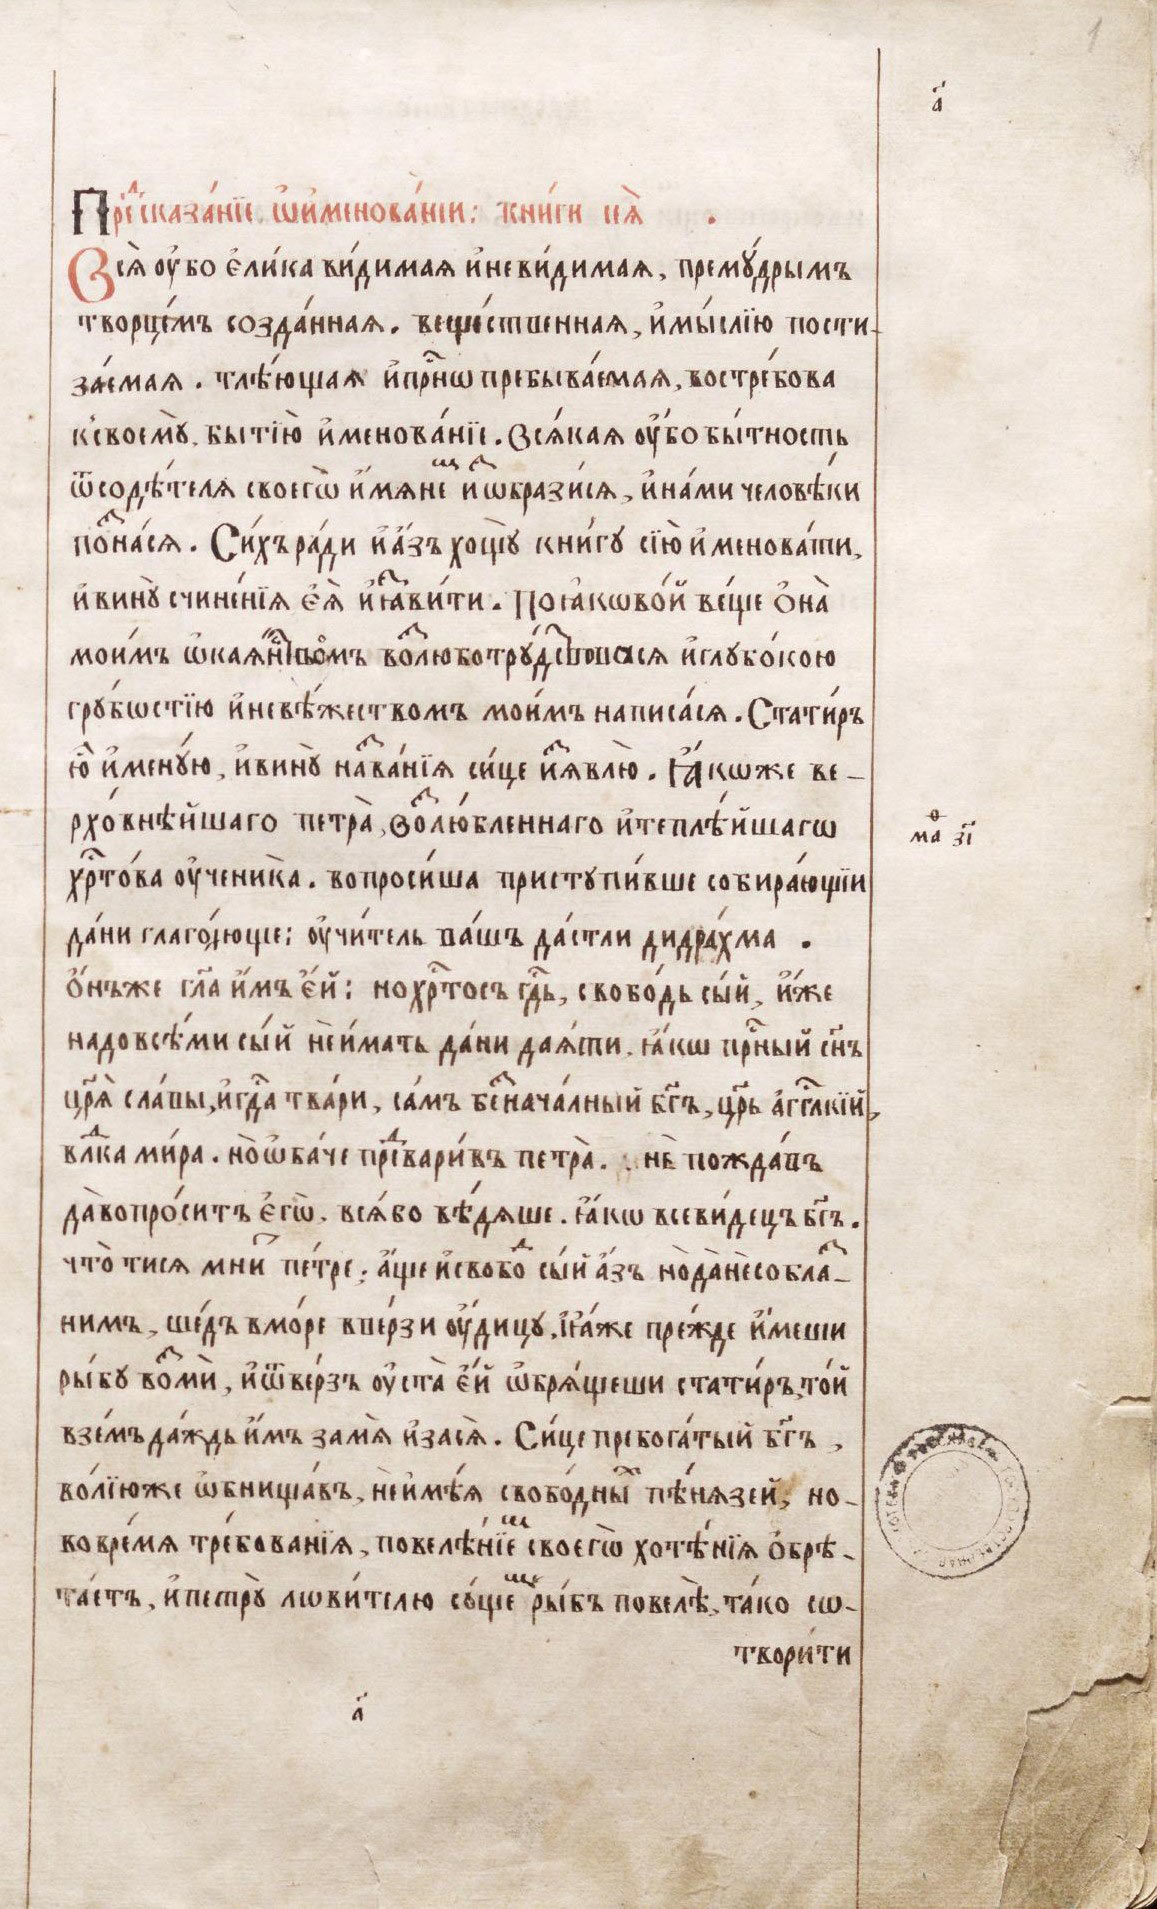 1
а҃
Пре́дсказа́нїе, ѡ҆и҆менова́нїи: кни́ги сея̀ .
Всѧ̀ ѹ҆́бо є҆ли́ка ви́димаѧ и҆неви́димаѧ, премꙋ́дрымъ
творце́мъ созда́ннаѧ. веще́ственнаѧ, и҆мы́слїю пости-
за́емаѧ. тлѣ́ющаѧ и҆пр҃нѡ пребыва́емаѧ, востре́бова
к̾своемꙋ̀, бытїю̀ и҆менова́нїе. Всѧ́каѧ ѹ҆́бо бы́тность
ѿсодѣ́телѧ своегѡ̀ и҆́мѧне и҆ѡбрази́сѧ, и҆на́ми человѣ́ки
позна́сѧ. Си́хъ ра́ди и҆а҆́зъ хощꙋ̀ кни́гꙋ сїю̀ и҆менова́ти,
и҆винꙋ̀ счине́нїѧ є҆ѧ̀ и҆з̾ꙗ҆ви́ти. Поꙗ҆кѡво́й ве́ще ѻ҆на̀
мои́мъ ѡ҆каѧ́нствомъ возлюботрꙋ́дствовасѧ и҆глꙋбо́кою
грꙋ́бѡстїю и҆невѣ́жествомъ мои́мъ написа́сѧ. Стати́ръ
ю҆̀ и҆менꙋ́ю, и҆винꙋ̀ назва́нїѧ си́це и҆з̾ѧвлю̀. Ꙗ҆́кѡже ве-
рхо́внѣйшаго петра̀, возлю́бленнаго и҆теплѣ́йшагѡ
хр҃то́ва ѹ҆ченика̀. вопроси́ша пристꙋпи́вше собира́ющїи
да́ни глаго́люще: ѹ҆чи́тель ва́шъ да́стли дидра́хма .
ѻ҆́нъже гл҃а и҆́мъ є҆́й: нохр҃то́съ гд҃ь, свобо́дь сы́й, и҆́же
надовсѣ́ми сы́й нѐи́мать да́ни даѧ́ти. ꙗ҆́кѡ пр҃ный сн҃ъ
цр҃ѧ̀ сла́вы, и҆гд҃а тва́ри, са́мъ безнача́лный бг҃ъ, цр҃ь а҆гг҃лкїй,
влд҃ка ми́ра. но̀ѻба́че предвари́въ петра̀. нѐ пожда́въ
да̀вопро́ситъ є҆гѡ̀, всѧ́бо вѣ́дѧше. ꙗ҆́кѡ всеви́децъ бг҃ъ.
что̀ тисѧ мни́т пе́тре; а҆́ще и҆свобо́д сы́й а҆́зъ но̀да̀нѐсобла-
знимъ, ше́дъ вмо́ре ве́рзи ѹ҆́дицꙋ, и҆ꙗ҆́же пре́жде и҆́меши
ры́бꙋ возмѝ, и҆ѿве́рзъ ѹ҆ста̀ є҆́й ѡ҆брѧ́щеши стати́ръ, то́й
взе́мъ да́ждь и҆́мъ замѧ̀ и҆засѧ̀. Си́це пребога́тый бг҃ъ,
во́лїюже ѡ҆бнища́въ, нѐимѣ́ѧ свобо́дных пѣ́нѧзей, но-
вовре́мѧ тре́бованїѧ, повелѣ́нїем своегѡ̀ хотѣ́нїѧ ѻ҆брѣ-
та́етъ, и҆петрꙋ̀ лѡви́телю сꙋ́ще ры́бъ повелѣ̀, та́ко сѡ-
твори́ти
а҃
маѳ зі҃